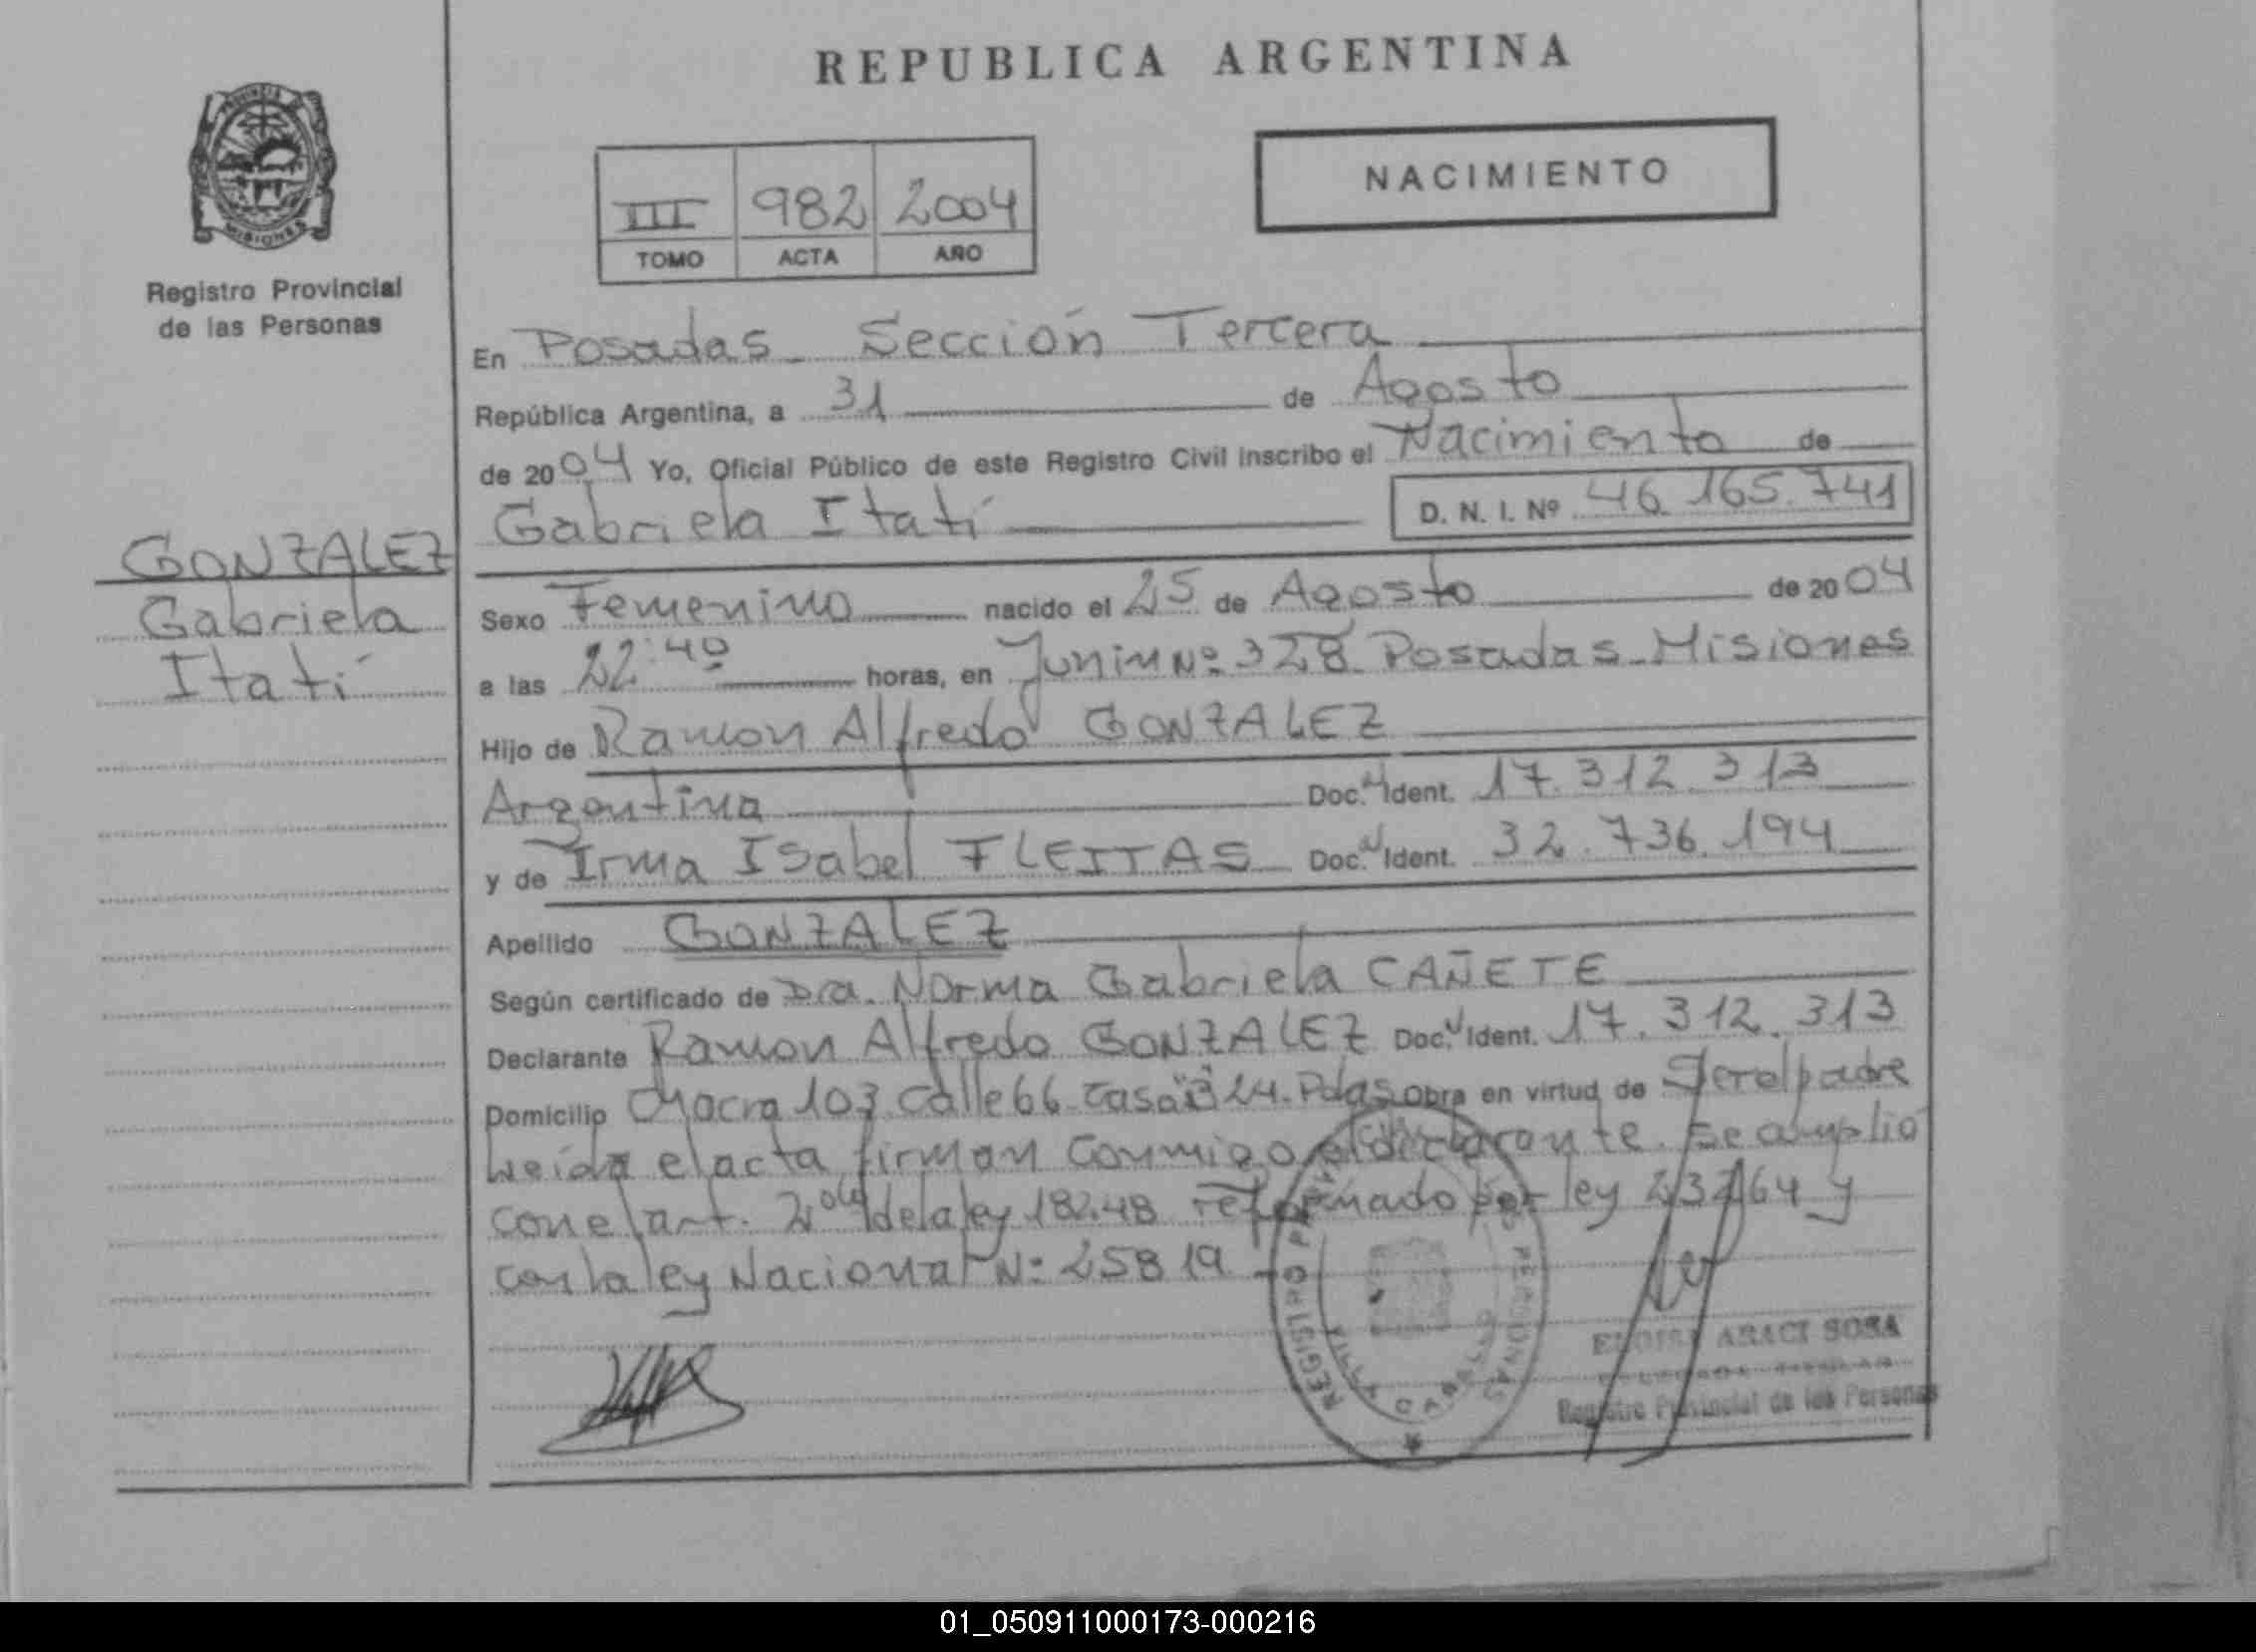 REPUBLICA ARGENTINA
PROVINCIA DE
MISIONES
Registro Provincial
de las Personas
NACIMIENTO
III 982 2004
TOMO ACTA AÑO
En Posadas - Sección Tercera
República Argentina, a 31 de Agosto
de 2004 Yo, Oficial Público de este Registro Civil inscribo el Nacimiento de
Gabriela Itatí D. N. I. Nº 46.165.741
GONZALEZ
Gabriela
Itatí
Sexo Femenino nacido el 25 de Agosto de 2004
a las 22:40 horas, en Junin Nº 328 Posadas - Misiones
Hijo de Ramon Alfredo GONZALEZ
Argentina Doc. Ident. 17.312.313
y de Irma Isabel FLEITAS Doc. Ident. 32.736.194
Apellido GONZALEZ
Según certificado de Dra. Norma Gabriela CAÑETE
Declarante Ramon Alfredo GONZALEZ Doc. Ident. 17.312.313
Domicilio Chacra 103 Calle 66 Casa 24. Pdas Obra en virtud de Ser el padre
Leida el acta firman conmigo el declarante. Se amplio
con el art. 2º de la ley 18248 reformado por ley 23264 y
con la ley Nacional Nº 25819
REGISTRO PERSONAS
POSADAS
ARACI SOSA
Registro Provincial de las Personas
01_050911000173-000216